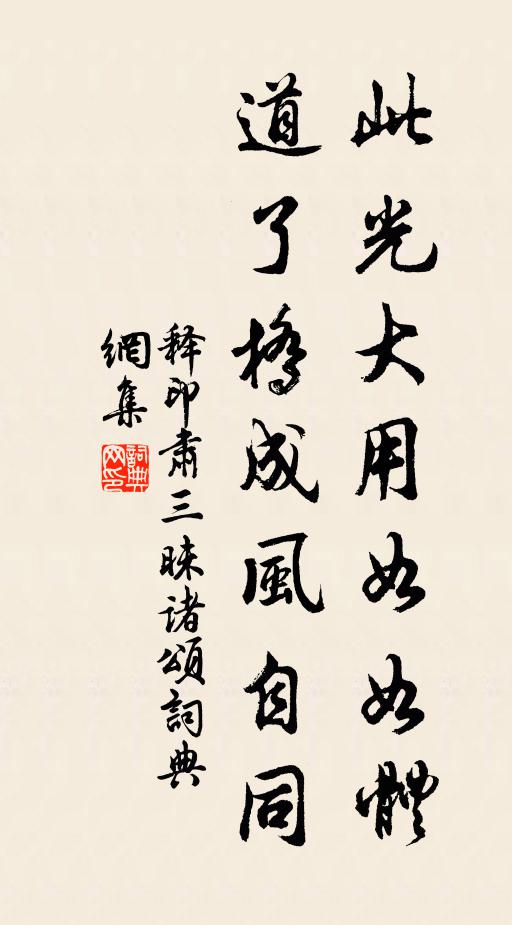 此光大用如如體
道了橋成風自同
释印肅三昧诸頌詞典
網集
詞典
网印